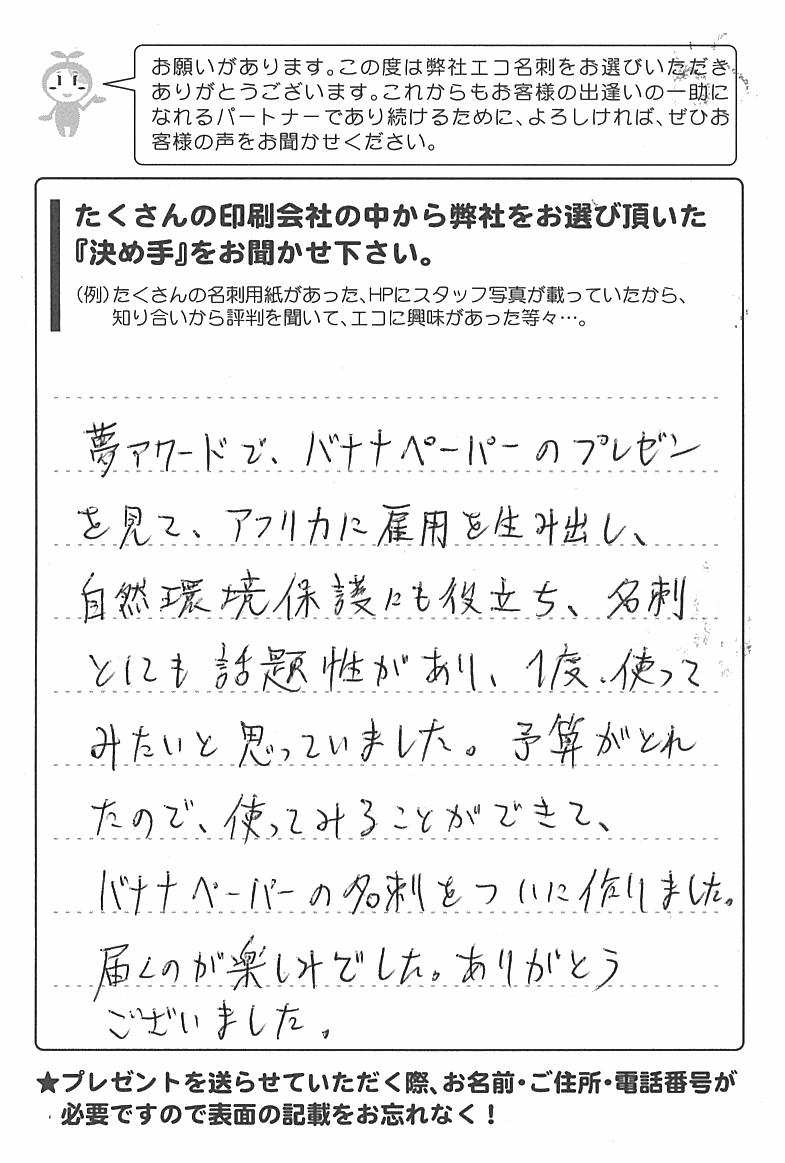 お願いがあります。この度は弊社エコ名刺をお選びいただき
ありがとうございます。これからもお客様の出逢いの一助に
なれるパートナーであり続けるために、よろしければ、ぜひお
客様の声をお聞かせください。
たくさんの印刷会社の中から弊社をお選び頂いた
『決め手』をお聞かせ下さい。
(例)たくさんの名刺用紙があった、HPにスタッフ写真が載っていたから、
知り合いから評判を聞いて、エコに興味があった等々…。
夢アワードで、バナナペーパーのプレゼン
を見て、アフリカに雇用を生み出し、
自然環境保護にも役立ち、名刺
としても話題性があり、1度、使って
みたいと思っていました。予算がとれ
たので、使ってみることができて、
バナナペーパーの名刺をついに作りました。
届くのが楽しみでした。ありがとう
ございました。
★プレゼントを送らせていただく際、お名前・ご住所・電話番号が
必要ですので表面の記載をお忘れなく!